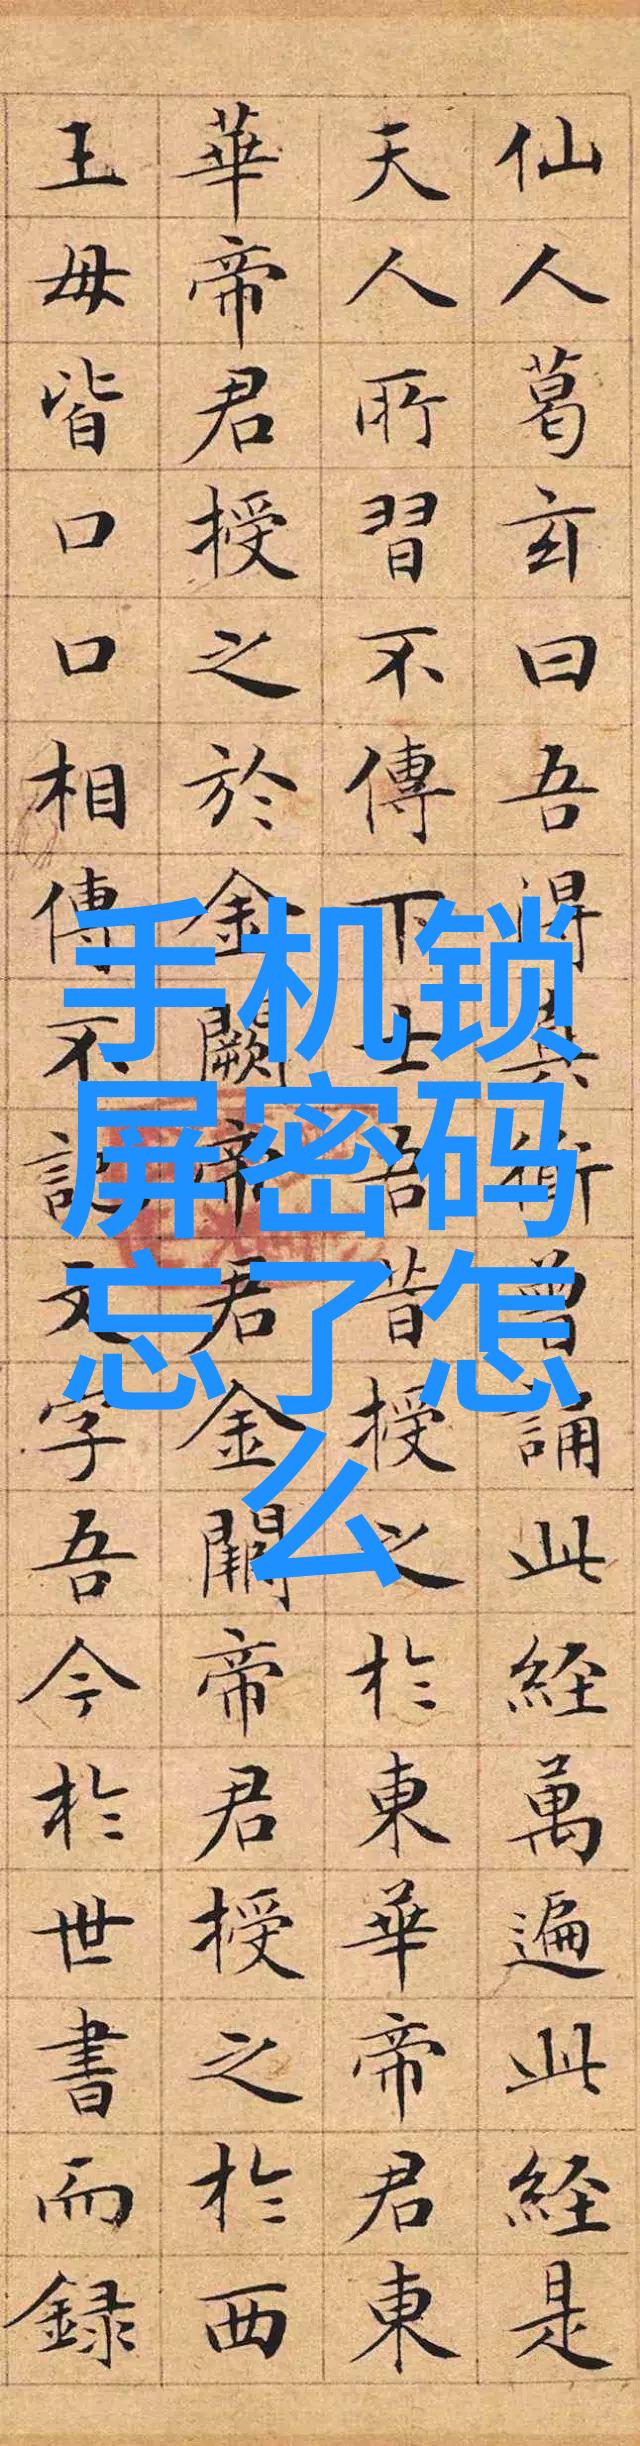 手机锁
屏密码
忘了怎
么
仙人葛玄曰吾得真術曾誦此経萬遍此経是
天人所習不傳下士吾昔授之於東華帝君東
華帝君授之於金闕帝君金闕帝君授之於西
王母皆口口相傳不記文字吾今於世書而録